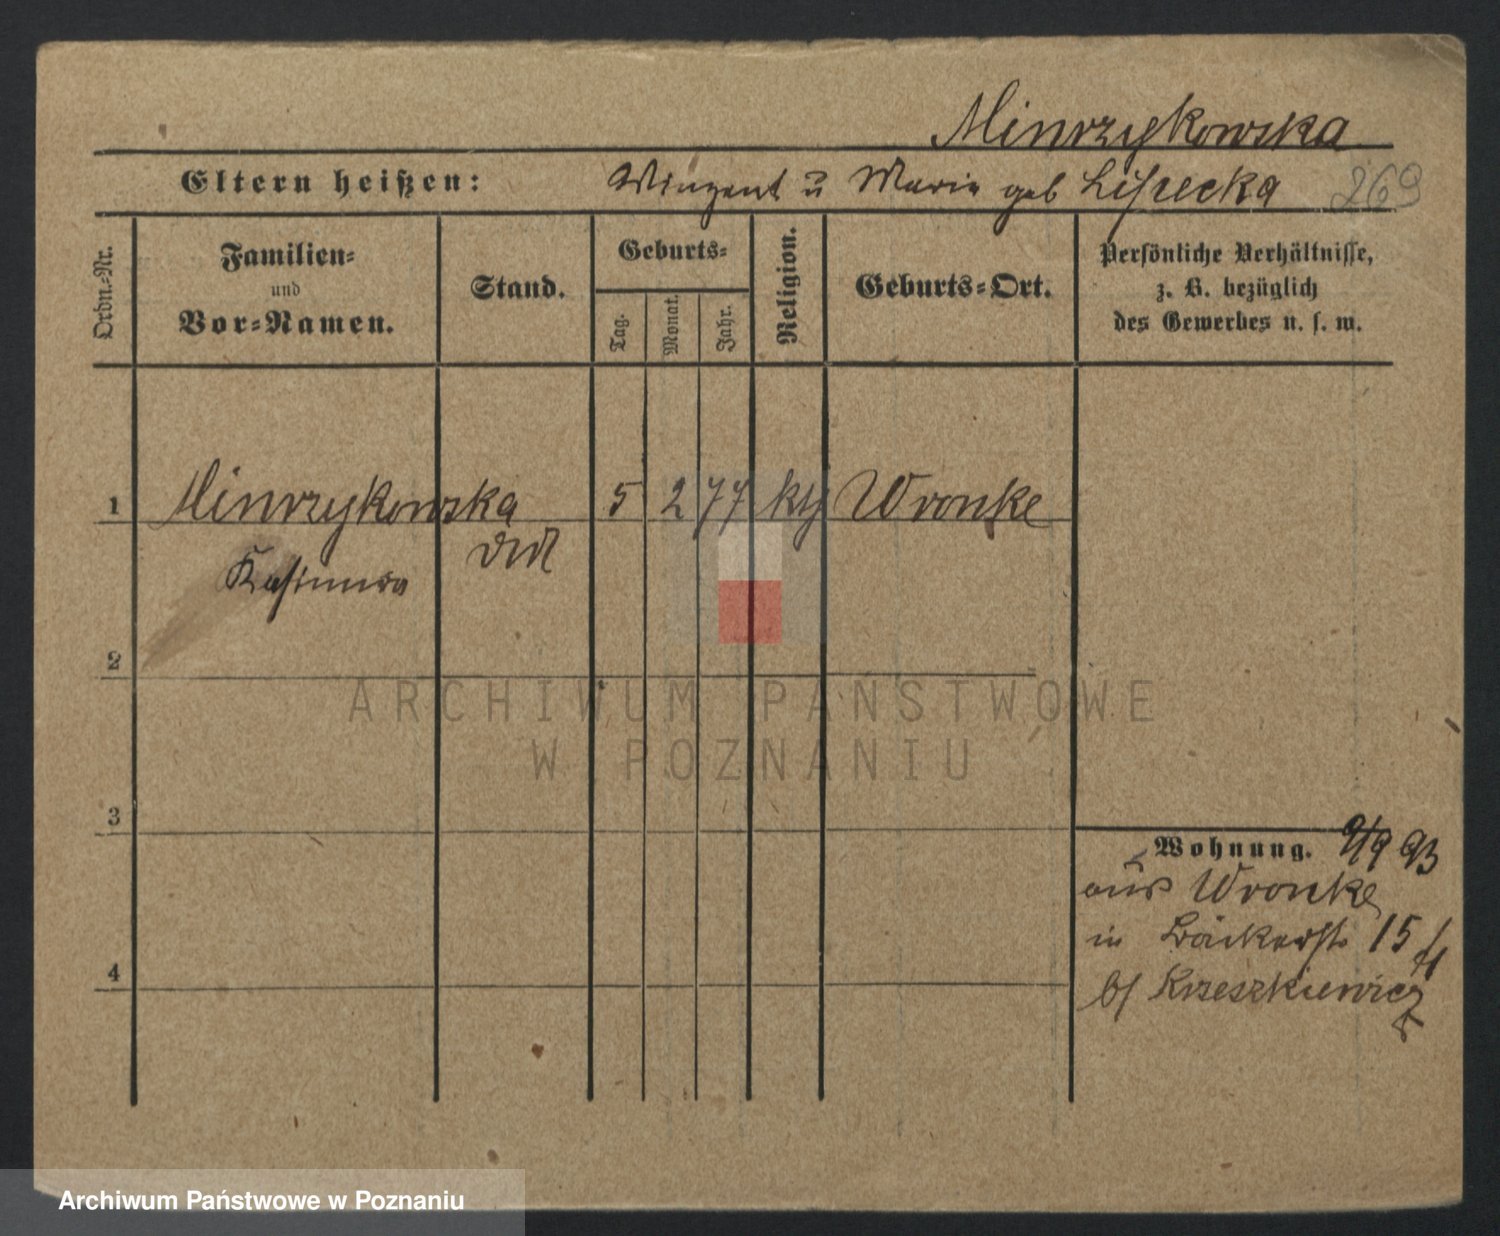 Minrzykowska
Eltern heißen: Winzent u Marie geb Lisiecka 269
Ordn.-Nr.
Familien-
und
Vor-Namen.
Stand.
Geburts-
Tag.
Monat.
Jahr.
Religion.
Geburts-Ort.
Persönliche Verhältnisse,
z. B. bezüglich
des Gewerbes u. s. w.
1 Minrzykowska 5 2 77 kth Wronke
Kasimira
2
3
4
Wohnung. 9/9 93
aus Wronke
in Bäckerstr 15
b/ Krzeszkiewicz
ARCHIWUM PAŃSTWOWE
W POZNANIU
Archiwum Państwowe w Poznaniu